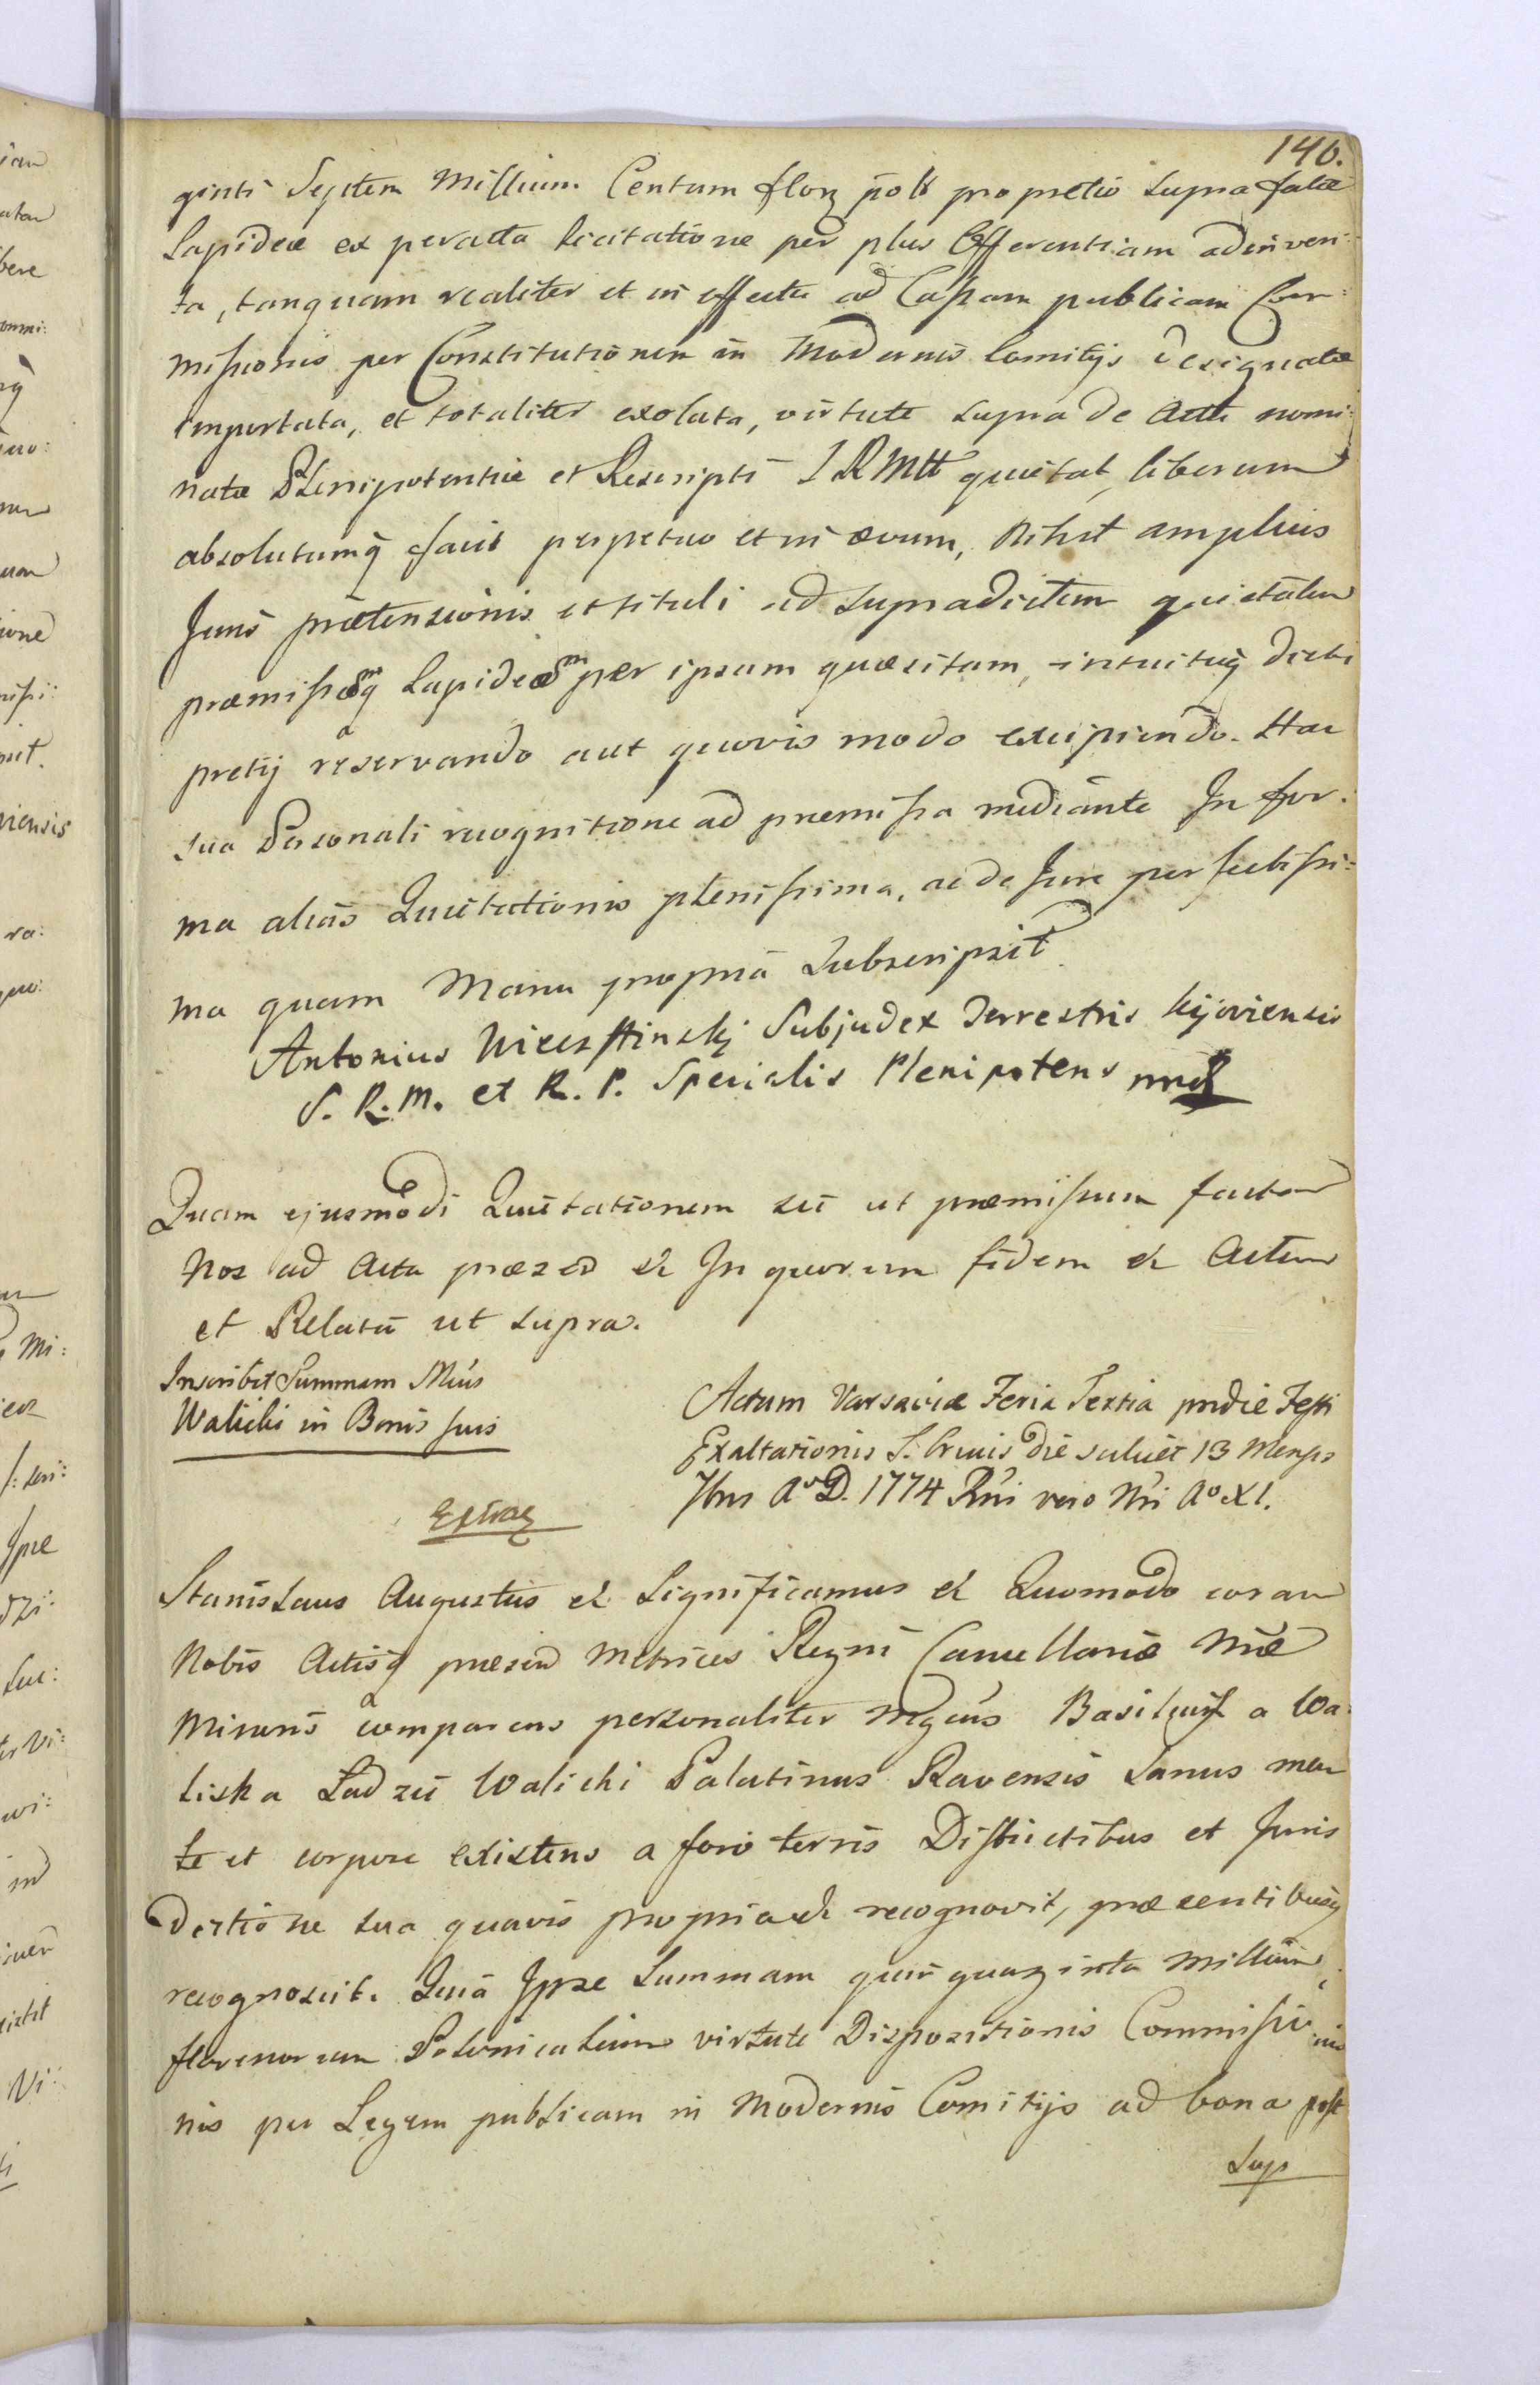 140.
ginti Septem Millium Centum flor poll pro pretio supra fatæ
Lapideæ ex peracta licitatione per plus Offerentiam adinven:
ta, tanquam realiter et in effectu ad Cassam publicam Com:
missionis per Constitutionem in Modernis Comitijs designatæ
importata, et totaliter exoluta, virtute supra de Actu nomi:
natæ Plenipotentiæ et Rescripti S R Mtt quietat, liberum
absolutumq facit perpetuo et in ævum, Nihil amplius
Juris prætensionis et tituli ad supradictam quietatam
præmissamq Lapideam per ipsum quæsitam, intuituq dicti
pretij reservando aut quovis modo excipiendo. Hac
sua Personali recognitione ad præmissa mediante In for:
ma alias Quietationis plenissima, ac de Jure perfectissi:
ma quam Manu propria Subscripsit
Antonius Subjudex Terrestris Kijoviensis
S. R. M. et R. P. Specialis Plenipotens mp
Quam ejusmodi Quietationem sic ut præmissum factam
Nos ad Acta præsen & In quorum fidem & Actum
et Relatū ut supra.
Inscribit Summam Mcus
Walicki in Bonis suis
Actum Varsaviæ Feria Tertia pridie Festi
Exaltationis S. Crucis die scilicet 13 Mensis
7bris Aº D. 1774 Rni vero Nri Aº XI.
Extrad
Stanislaus Augustus & Significamus & Quomodo coram
Nobis Actisq præsen Metrices Regni Cancellariæ Nræ
Minoris comparens personaliter Mgcus Basilius a Wa:
liska Ładzic Walicki Palatinus Ravensis Sanus men
te et corpore existens a foro terris Districtibus et Juris
dictione sua quavis propria & recognovit, præsentibusq
recognoscit. Quia Ipse Summam quinquaginta Millium
florenorum Polonicalium virtute Dispositionis Commissio
nis per Legem publicam in Modernis Comitijs ad bona post
Sup